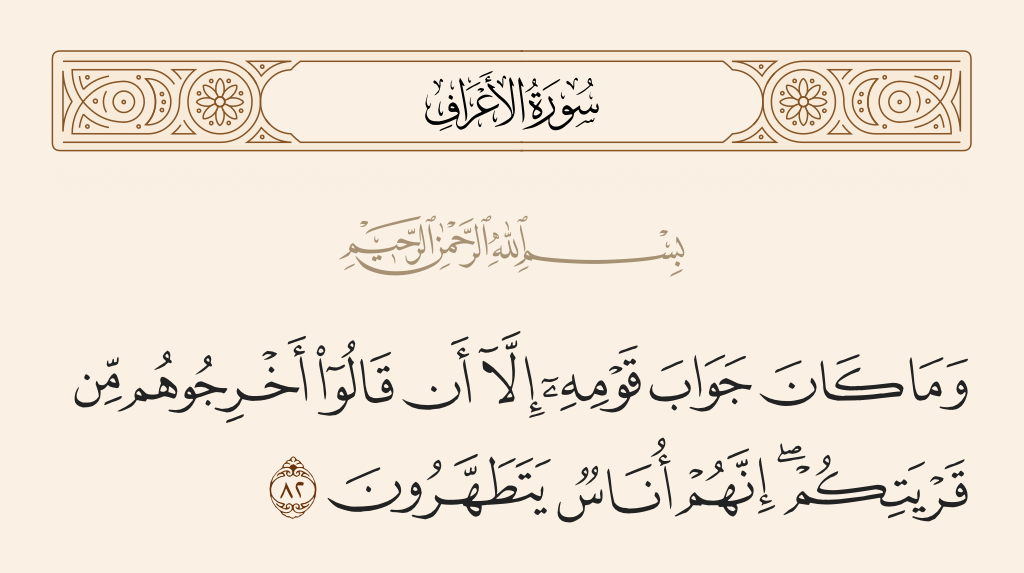 سُورَةُ الأَعْرَافِ
بِسْمِ ٱللَّهِ ٱلرَّحْمَٰنِ ٱلرَّحِيمِ
وَمَا كَانَ جَوَابَ قَوْمِهِۦٓ إِلَّآ أَن قَالُوٓا۟ أَخْرِجُوهُم مِّن
قَرْيَتِكُمْ ۖ إِنَّهُمْ أُنَاسٌ يَتَطَهَّرُونَ ٨٢